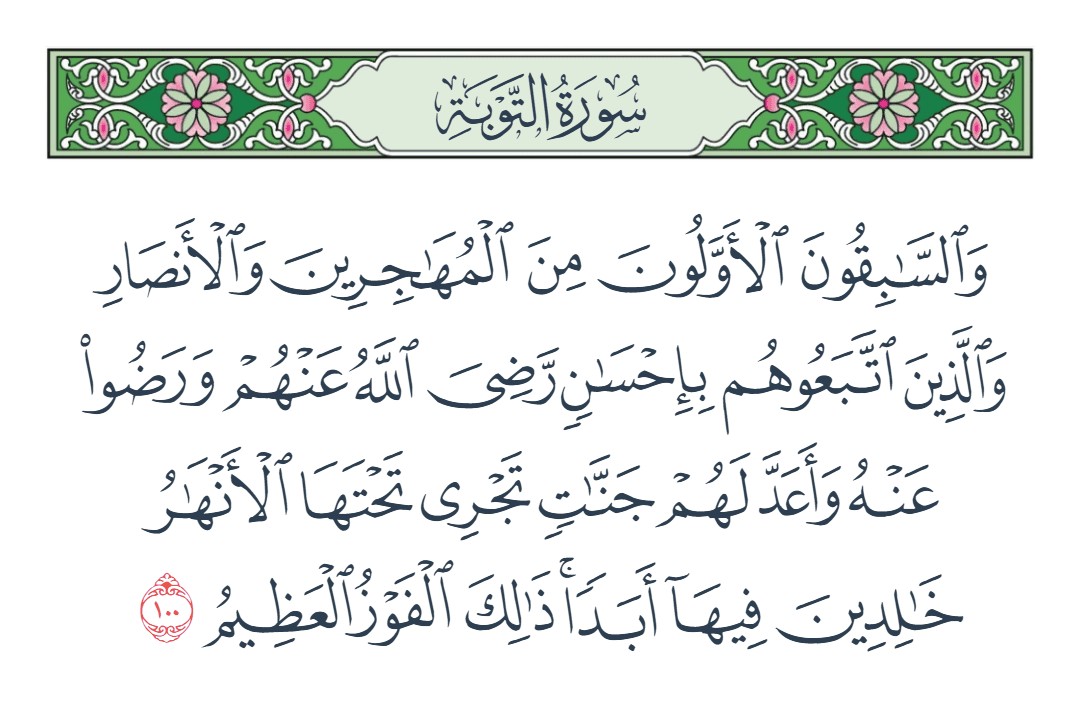 سُورَةُ التَّوْبَةِ
وَٱلسَّـٰبِقُونَ ٱلْأَوَّلُونَ مِنَ ٱلْمُهَـٰجِرِينَ وَٱلْأَنصَارِ
وَٱلَّذِينَ ٱتَّبَعُوهُم بِإِحْسَـٰنٍ رَّضِىَ ٱللَّهُ عَنْهُمْ وَرَضُوا۟
عَنْهُ وَأَعَدَّ لَهُمْ جَنَّـٰتٍ تَجْرِى تَحْتَهَا ٱلْأَنْهَـٰرُ
خَـٰلِدِينَ فِيهَآ أَبَدًا ۚ ذَٰلِكَ ٱلْفَوْزُ ٱلْعَظِيمُ ١٠٠